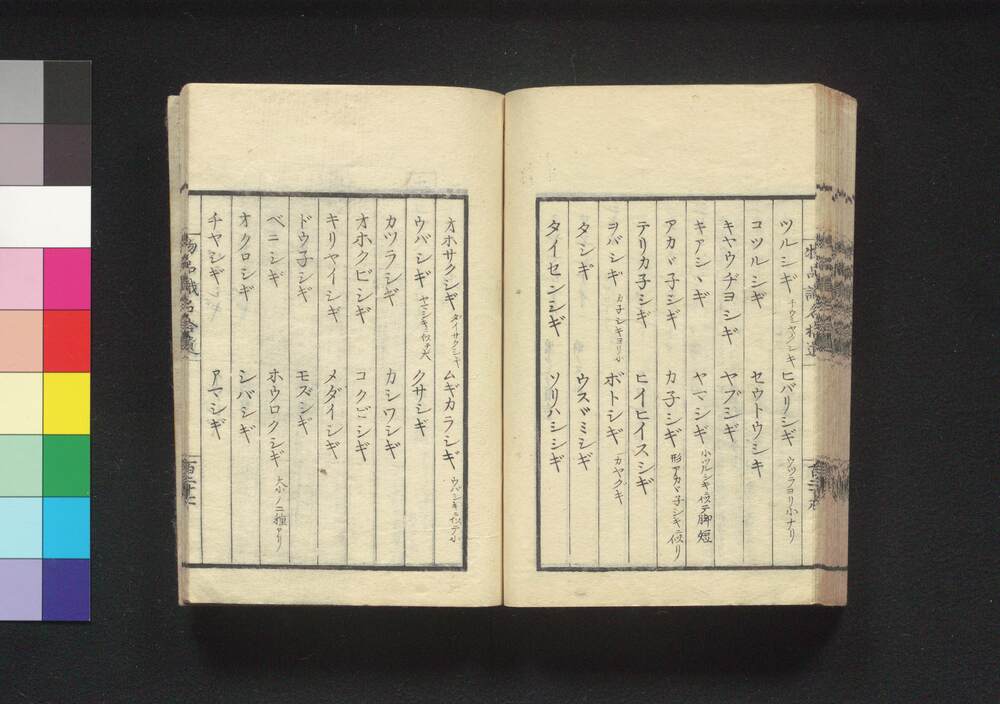 ツルシギ チウシヤクシギ ヒバリシギ ウヅラヨリ小ナリ
コツルシギ セウトウシギ
キヤウヂヨシギ ヤブシギ
キアシヽギ ヤマシギ 小ツルシギニ似テ脚短
アカヾ子シギ カ子シギ 形アカヾ子シギニ似リ
テリカ子シギ ヒイヒイスシギ
ヲバシギ カ子シギヨリ小 ボトシギ カヤクキ
タシギ ウスヾミシギ
タイゼンシギ ソリハシシギ
オホサクシギ ダイサクシギ ムギカラシギ ウバシギニ似テ小
ウバシギ ヤマシギニ似テ大 クサシギ
カツラシギ カシワシギ
オホクビシギ コクビシギ
キリヤイシギ メダイシギ
ドウ子シギ モズシギ
ベニシギ ホウロクシギ 大小ノ二種アリ
オクロシギ シバシギ
チヤシギ アマシギ
物品識名拾遺